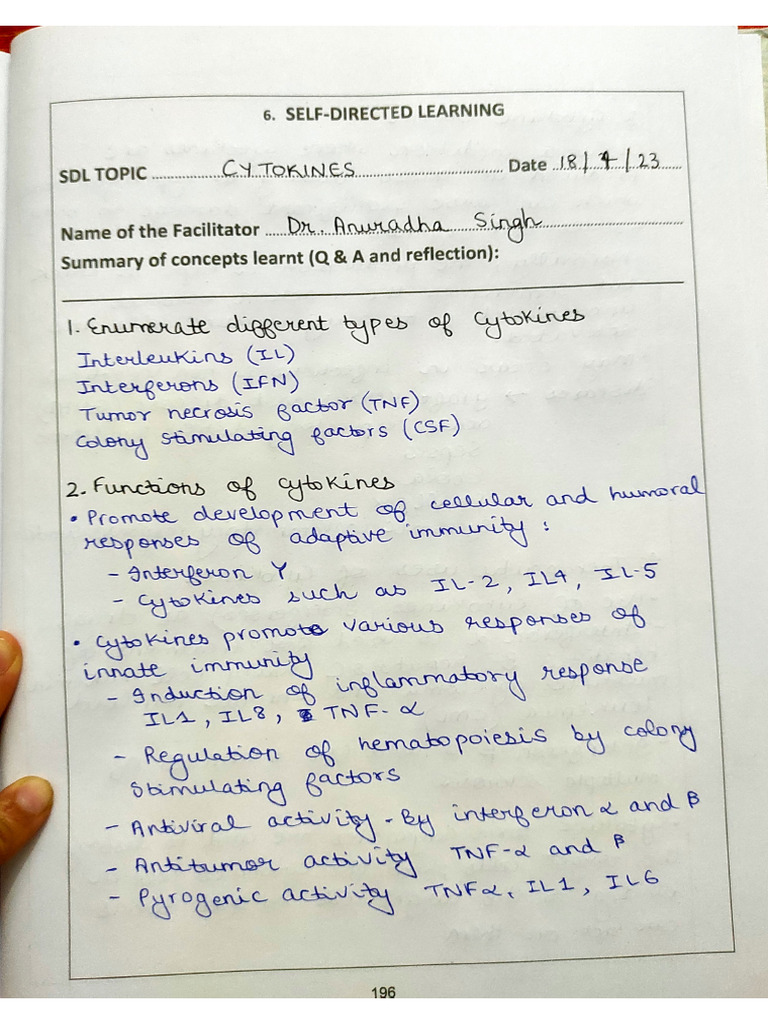 6. SELF-DIRECTED LEARNING
SDL TOPIC ........ CYTOKINES ........ Date ..18/7/23......
Name of the Facilitator ..... Dr. Anuradha Singh ........
Summary of concepts learnt (Q & A and reflection):
1. Enumerate different types of Cytokines
Interleukins (IL)
Interferons (IFN)
Tumor necrosis factor (TNF)
Colony stimulating factors (CSF)
2. Functions of cytokines
• Promote development of cellular and humoral
responses of adaptive immunity :
- Interferon γ
- Cytokines such as IL-2, IL4, IL-5
• Cytokines promote various responses of
innate immunity
- Induction of inflammatory response
IL1, IL8, TNF-α
- Regulation of hematopoiesis by colony
stimulating factors
- Antiviral activity - By interferon α and β
- Antitumor activity TNF-α and β
- Pyrogenic activity TNFα, IL1, IL6
196